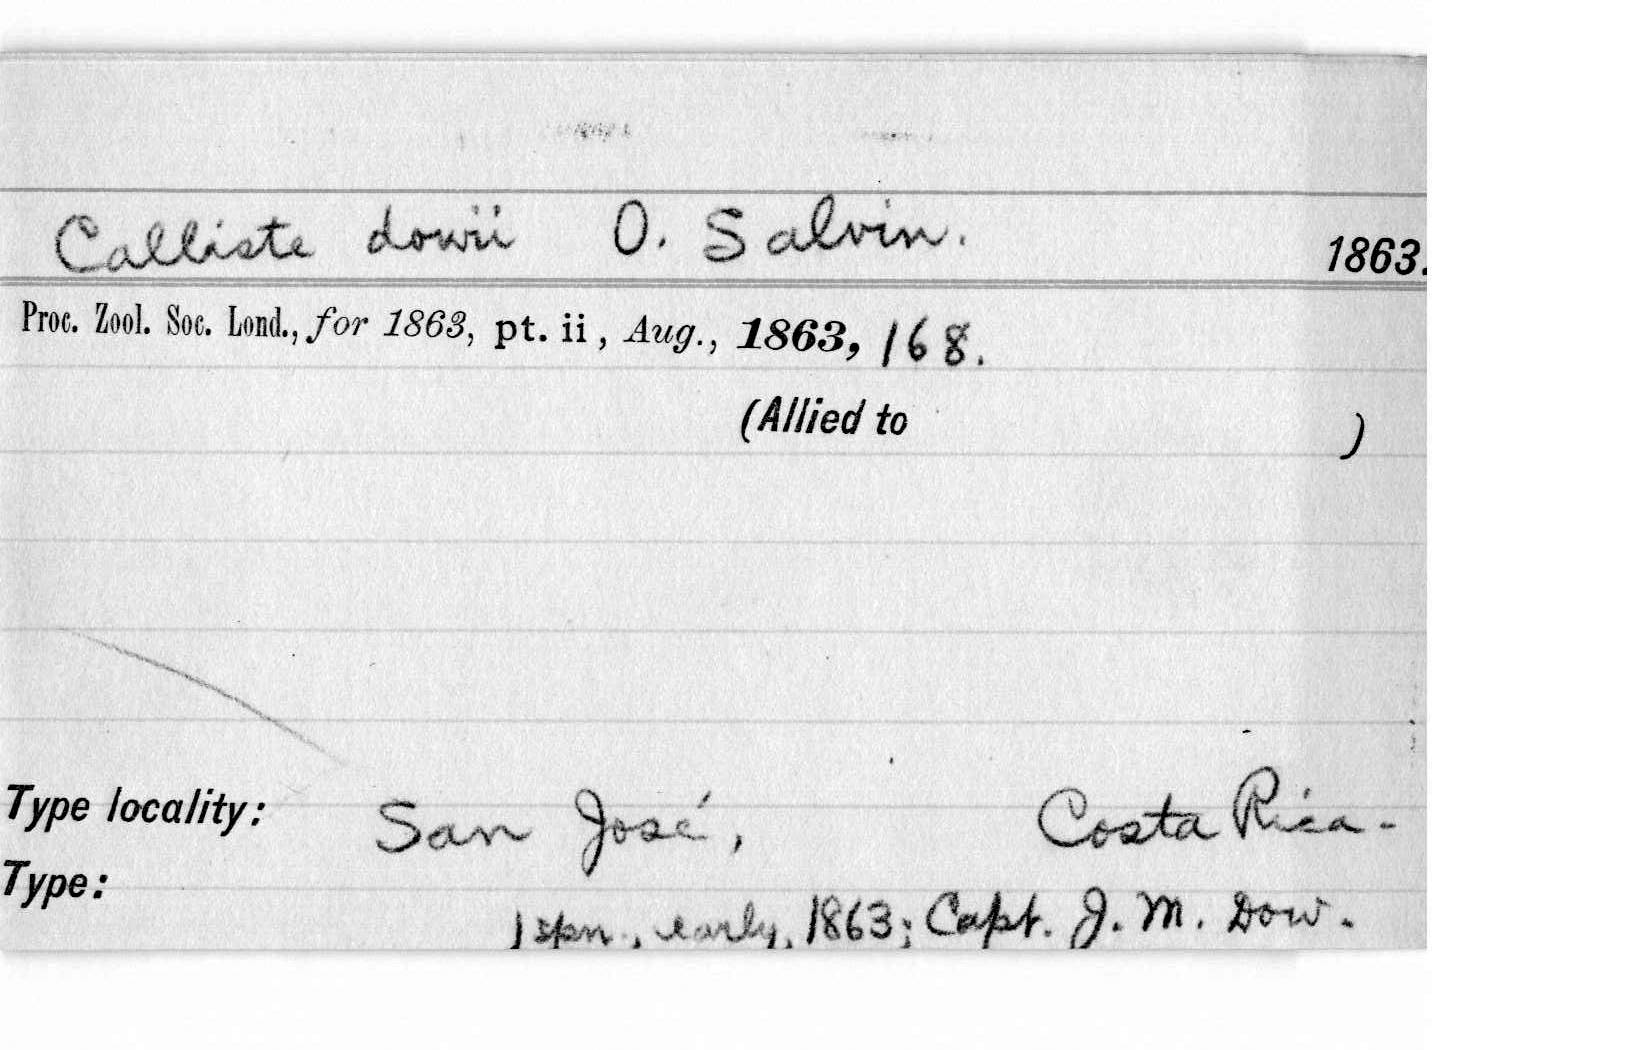 Calliste dowii O. Salvin. 1863.
Proc. Zool. Soc. Lond., for 1863, pt. ii, Aug., 1863, 168.
(Allied to )
Type locality: San José, Costa Rica.
Type:
1 spn., early, 1863; Capt. J. M. Dow.